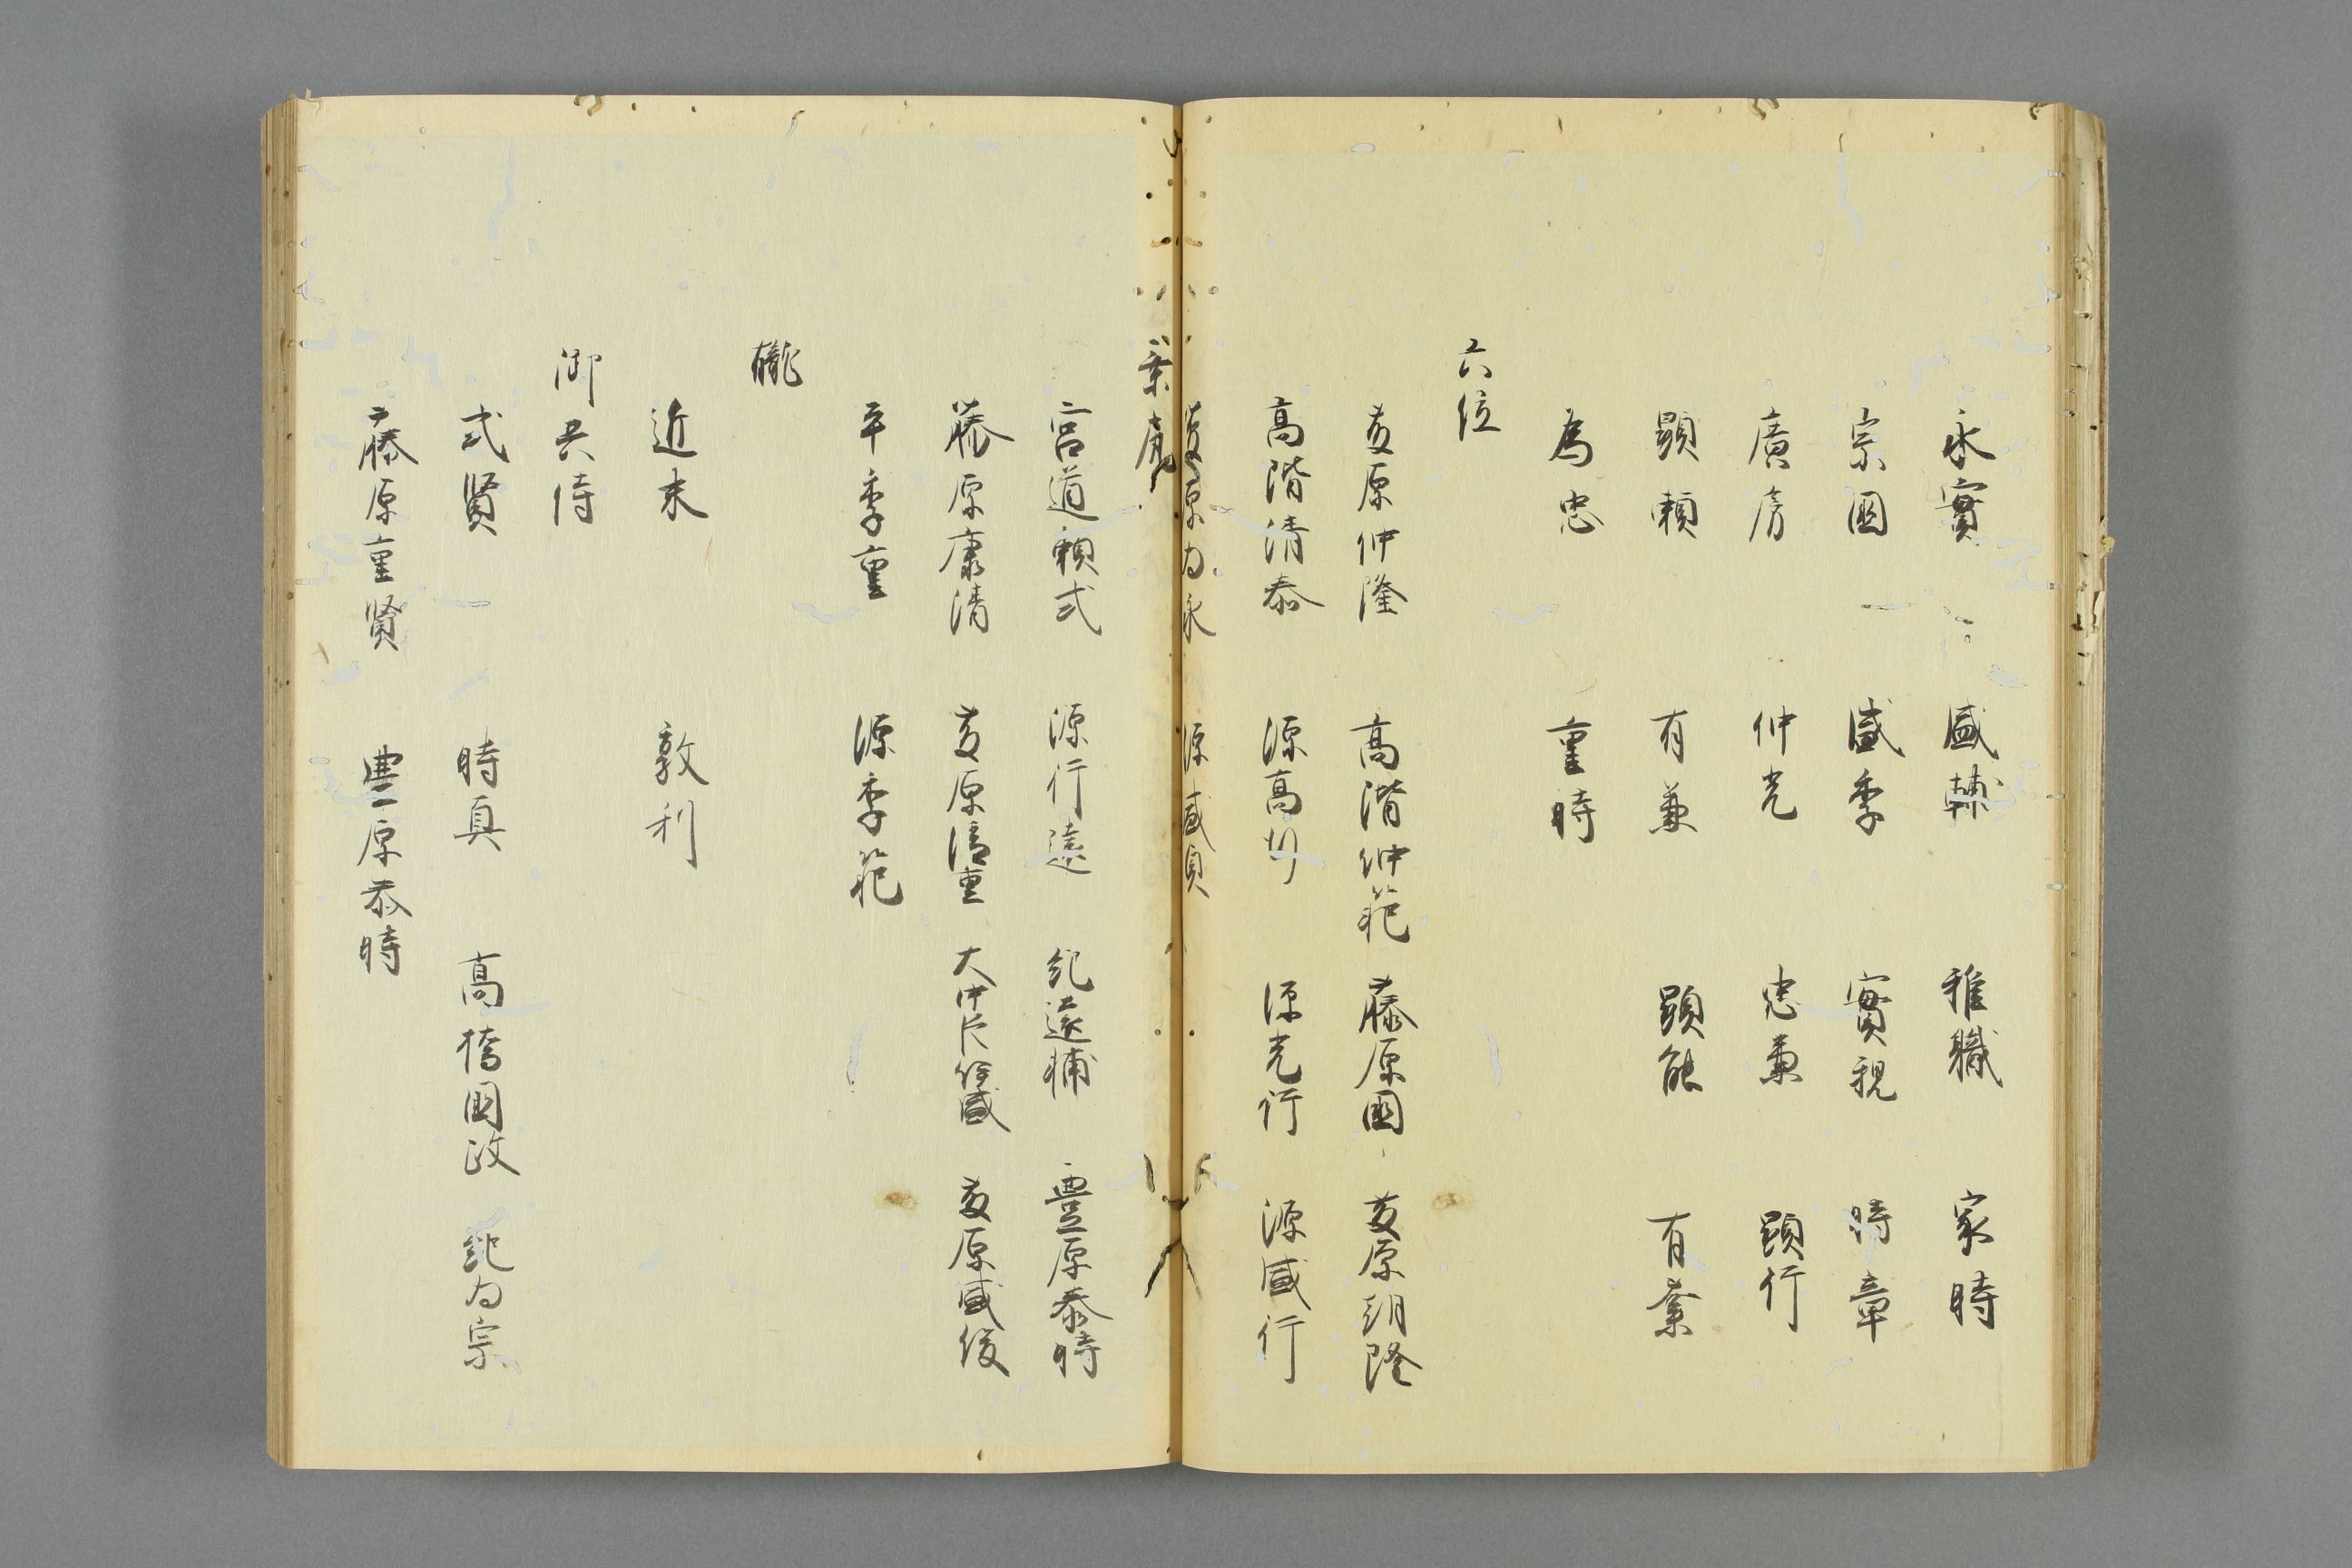 永實 盛輔 雅職 家時
宗國 盛季 實親 時章
廣房 仲光 忠兼 顕行
顕頼 有兼 顕能 有業
為忠 重時
六位
藤原仲隆 高階仲範 藤原國 藤原朝隆
高階清泰 源高 源光行 源盛行
藤原為永 源盛貞
宮道頼式 源行遠 紀遠輔 豊原泰時
藤原康清 藤原清重 大中臣盛 藤原盛俊
平季重 源季範
朧
近末 敦利
御共侍
式賢 時真 高橋國政 紀為宗
藤原重賢 豊原恭時